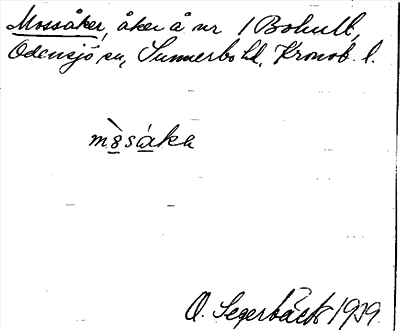 Mossåker, åker å nr 1 Bohult,
Odensjö sn, Sunnerbo hd, Kronob. l.
O. Segerbäck 1929.